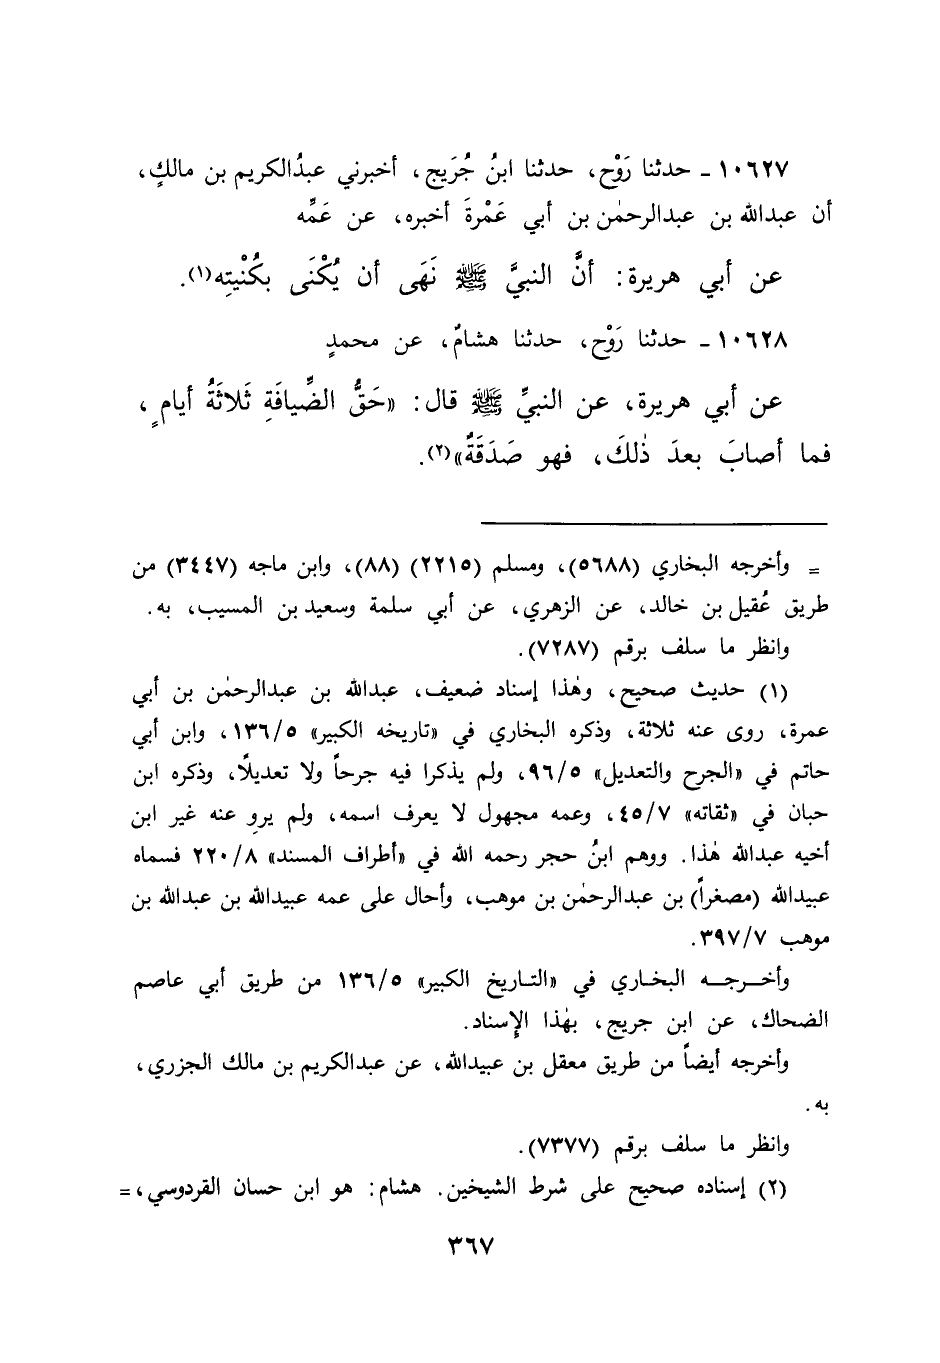 ١٠٦٢٧ ـ حدثنا رَوْح، حدثنا ابنُ جُرَيج، أخبرني عبدُالكريم بن مالكٍ،
أن عبدالله بن عبدالرحمٰن بن أبي عَمْرةَ أخبره، عن عَمِّه
عن أبي هريرة: أنَّ النبيَّ ﷺ نَهَى أن يُكْنَى بكُنْيتِه(١).
١٠٦٢٨ ـ حدثنا رَوْح، حدثنا هشامٌ، عن محمدٍ
عن أبي هريرة، عن النبيِّ ﷺ قال: «حَقُّ الضِّيافَةِ ثَلاثَةُ أيامٍ،
فما أصابَ بعدَ ذٰلكَ، فهو صَدَقَةٌ»(٢).
= وأخرجه البخاري (٥٦٨٨)، ومسلم (٢٢١٥) (٨٨)، وابن ماجه (٣٤٤٧) من
طريق عُقيل بن خالد، عن الزهري، عن أبي سلمة وسعيد بن المسيب، به.
وانظر ما سلف برقم (٧٢٨٧).
(١) حديث صحيح، وهٰذا إسناد ضعيف، عبدالله بن عبدالرحمٰن بن أبي
عمرة، روى عنه ثلاثة، وذكره البخاري في «تاريخه الكبير» ١٣٦/٥، وابن أبي
حاتم في «الجرح والتعديل» ٩٦/٥، ولم يذكرا فيه جرحاً ولا تعديلًا، وذكره ابن
حبان في «ثقاته» ٤٥/٧، وعمه مجهول لا يعرف اسمه، ولم يروِ عنه غير ابن
أخيه عبدالله هٰذا. ووهم ابنُ حجر رحمه الله في «أطراف المسند» ٢٢٠/٨ فسماه
عبيدالله (مصغراً) بن عبدالرحمٰن بن موهب، وأحال على عمه عبيدالله بن عبدالله بن
موهب ٣٩٧/٧.
وأخـرجـه البخـاري في «التـاريخ الكبير» ١٣٦/٥ من طريق أبي عاصم
الضحاك، عن ابن جريج، بهٰذا الإسناد.
وأخرجه أيضاً من طريق معقل بن عبيدالله، عن عبدالكريم بن مالك الجزري،
به.
وانظر ما سلف برقم (٧٣٧٧).
(٢) إسناده صحيح على شرط الشيخين. هشام: هو ابن حسان القردوسي، =
٣٦٧